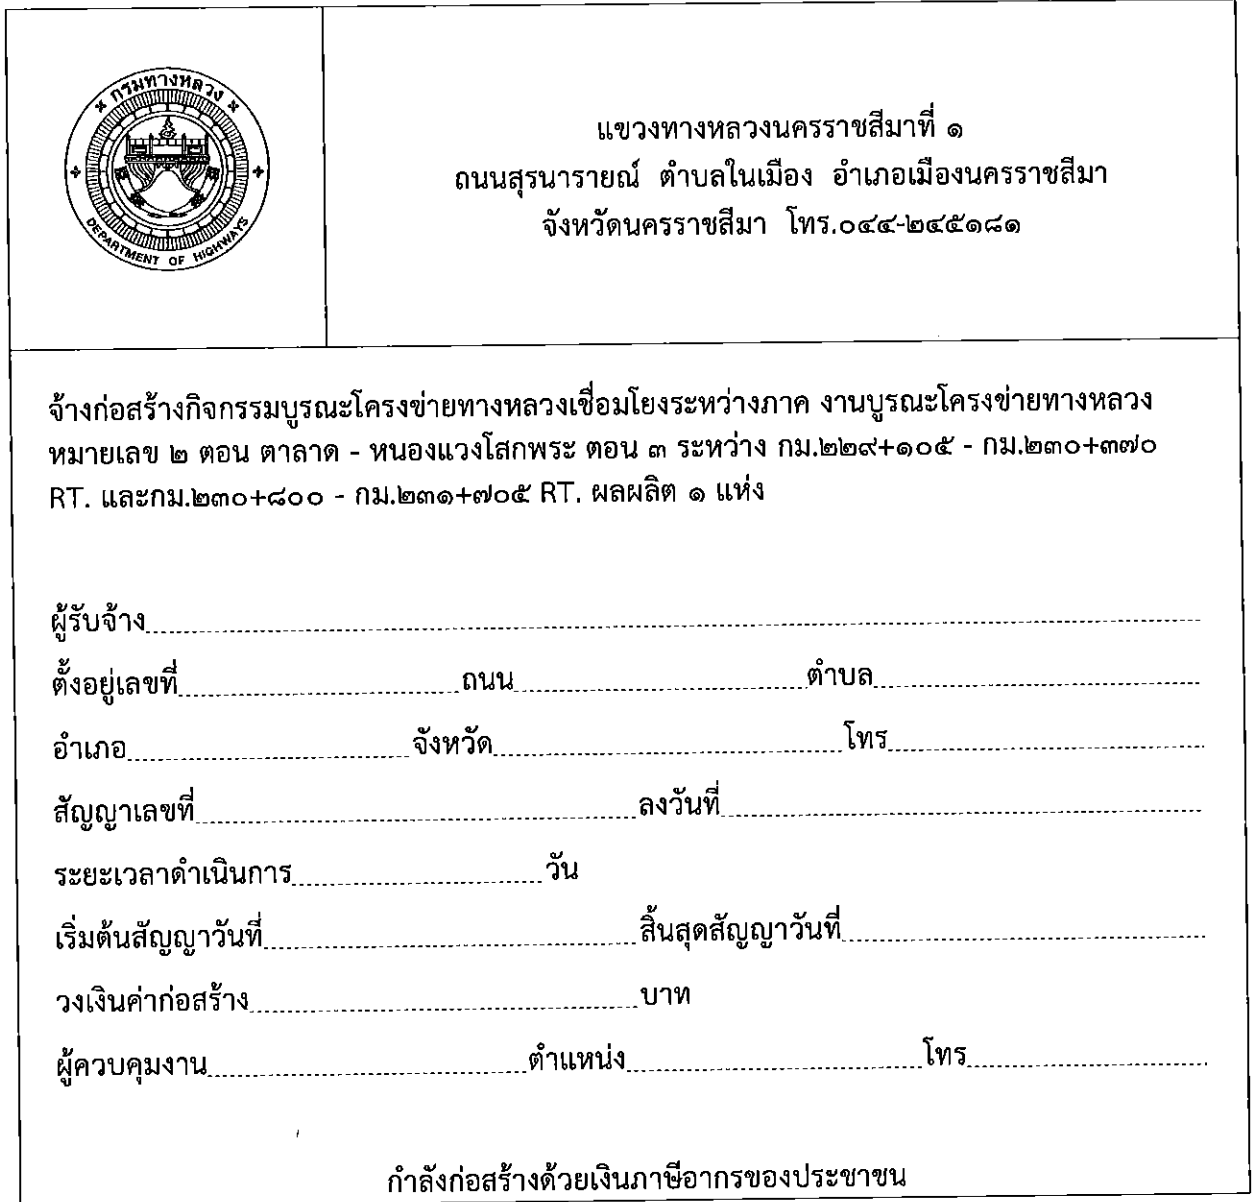 กรมทางหลวง
DEPARTMENT OF HIGHWAYS
แขวงทางหลวงนครราชสีมาที่ ๑
ถนนสุรนารายณ์ ตำบลในเมือง อำเภอเมืองนครราชสีมา
จังหวัดนครราชสีมา โทร.๐๔๔-๒๔๕๑๘๑
จ้างก่อสร้างกิจกรรมบูรณะโครงข่ายทางหลวงเชื่อมโยงระหว่างภาค งานบูรณะโครงข่ายทางหลวง
หมายเลข ๒ ตอน ตาลาด - หนองแวงโสกพระ ตอน ๓ ระหว่าง กม.๒๒๙+๑๐๕ - กม.๒๓๐+๓๗๐
RT. และกม.๒๓๐+๘๐๐ - กม.๒๓๑+๗๐๕ RT. ผลผลิต ๑ แห่ง
ผู้รับจ้าง
ตั้งอยู่เลขที่ ถนน ตำบล
อำเภอ จังหวัด โทร
สัญญาเลขที่ ลงวันที่
ระยะเวลาดำเนินการ วัน
เริ่มต้นสัญญาวันที่ สิ้นสุดสัญญาวันที่
วงเงินค่าก่อสร้าง บาท
ผู้ควบคุมงาน ตำแหน่ง โทร
กำลังก่อสร้างด้วยเงินภาษีอากรของประชาชน